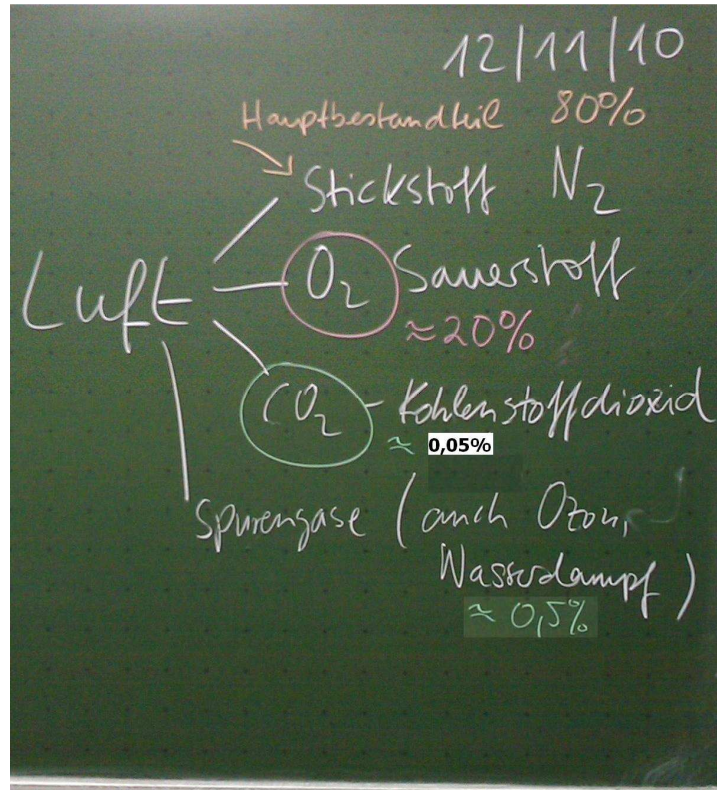 12/11/10
Hauptbestandteil 80%
Stickstoff N₂
Luft
O₂ Sauerstoff
≈20%
CO₂ - Kohlenstoffdioxid
≈ 0,05%
Spurengase (auch Ozon,
Wasserdampf)
≈ 0,5%